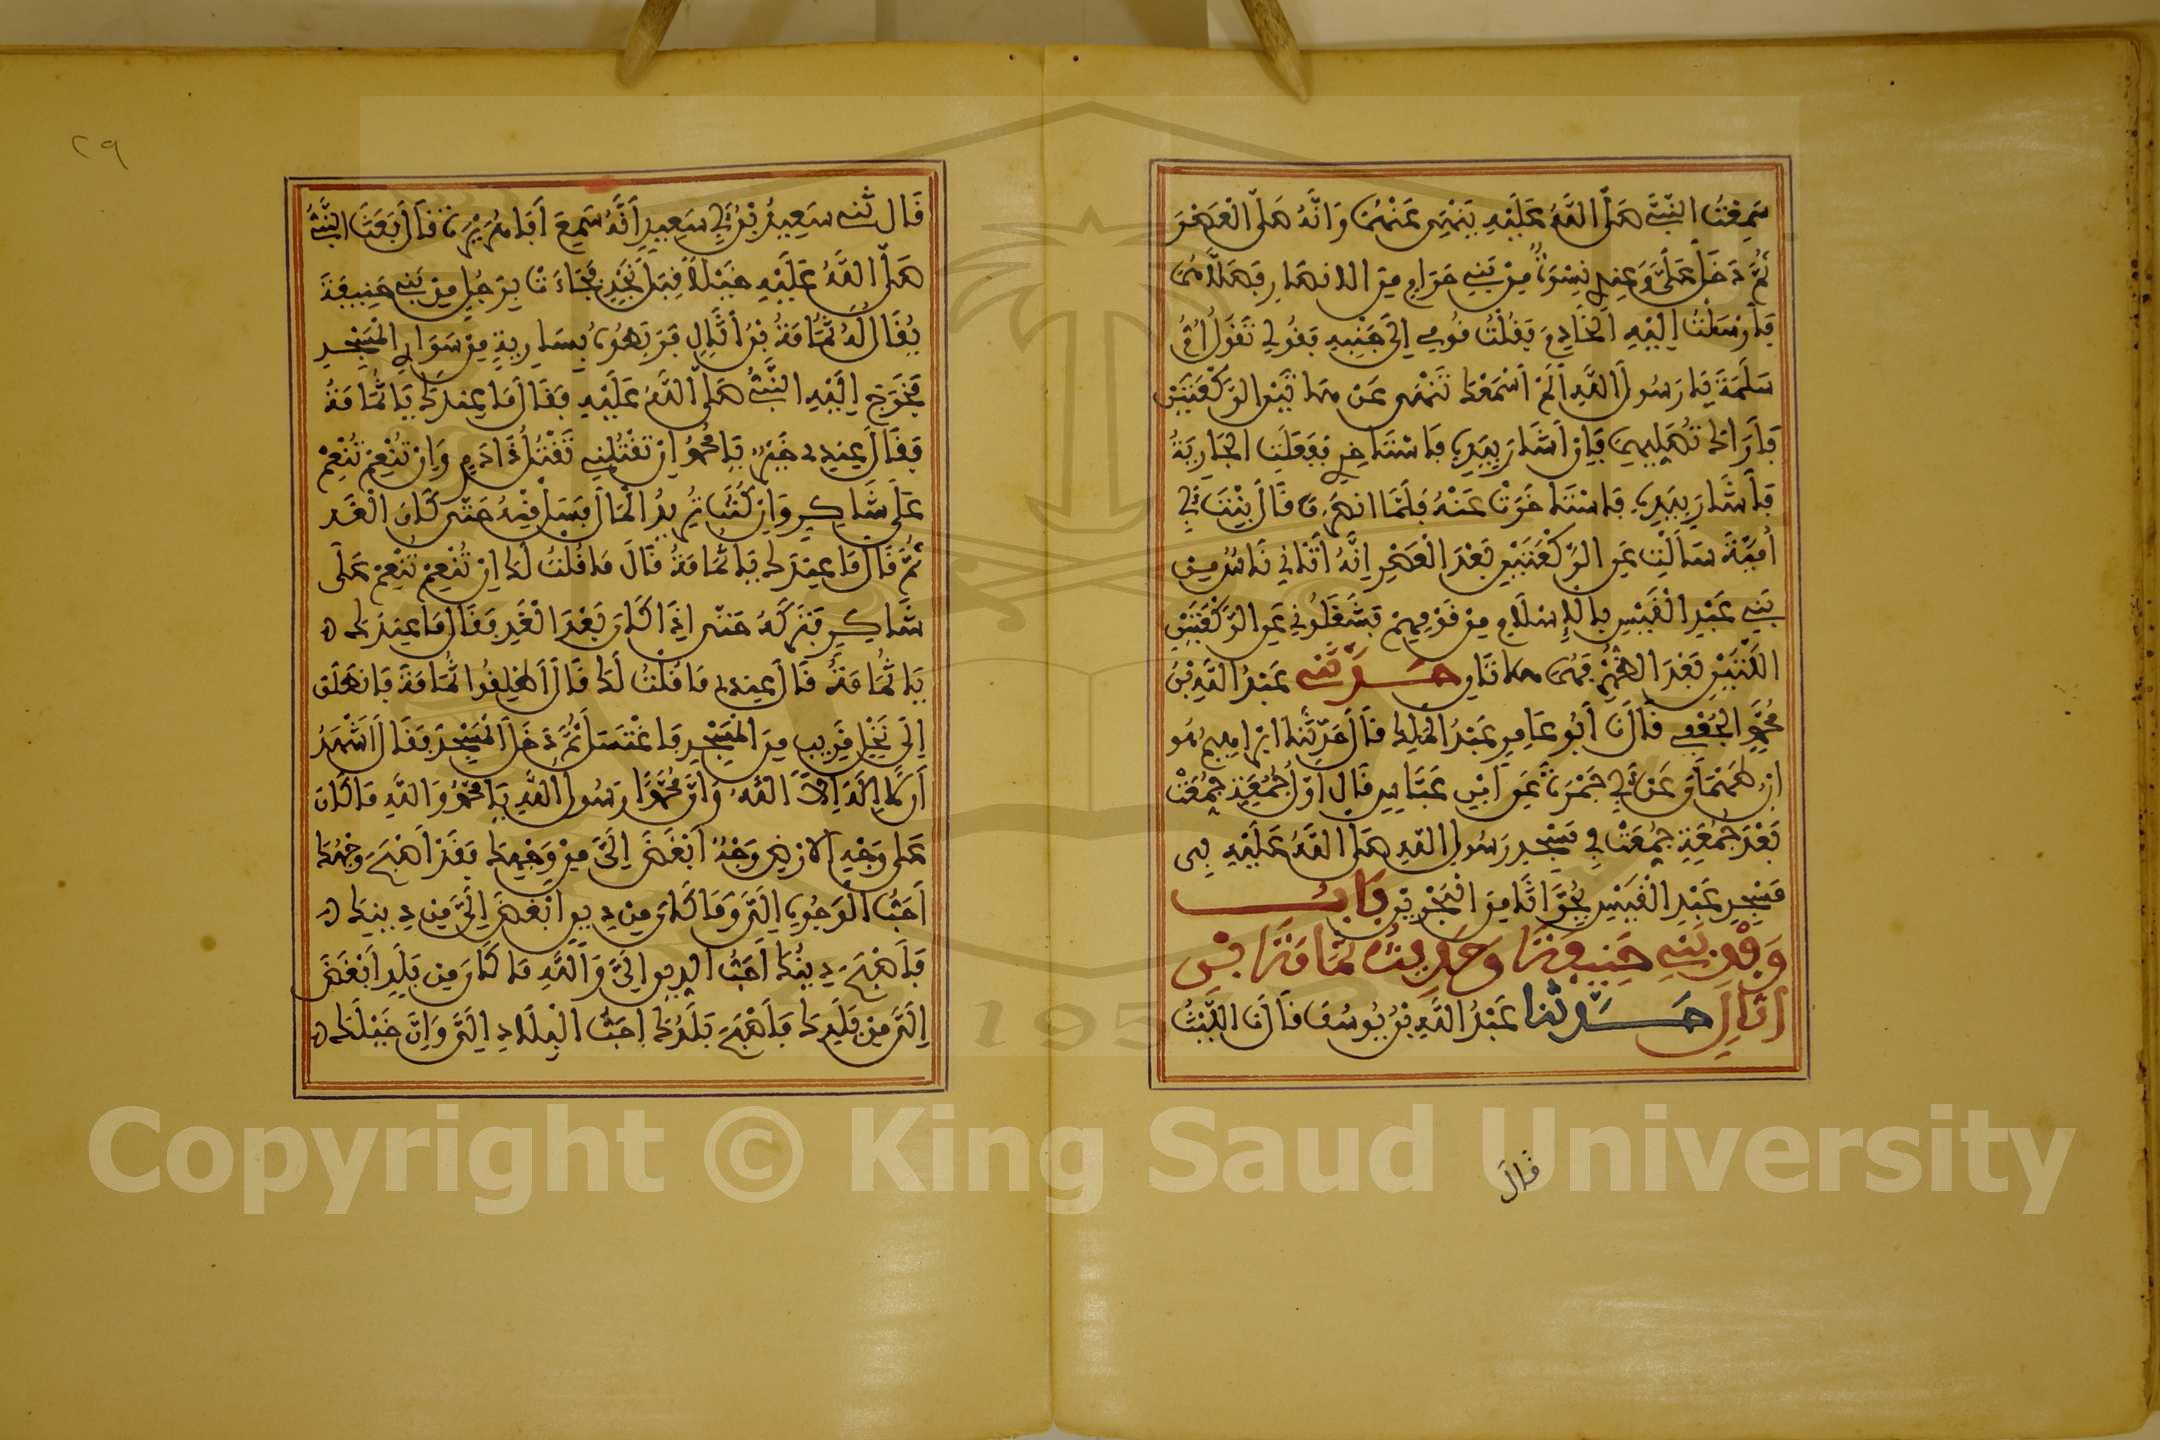 سَمِعْتُ النَّبِيَّ صَلَّى اللَّهُ عَلَيْهِ يَنْهَى عَنْهُمَا وَإِنَّهُ صَلَّى الْعَصْرَ
ثُمَّ دَخَلَ عَلَيَّ وَعِنْدِي نِسْوَةٌ مِنْ بَنِي حَرَامٍ مِنَ الْأَنْصَارِ فَصَلَّاهُمَا
فَأَرْسَلْتُ إِلَيْهِ الْخَادِمَ فَقُلْتُ قُومِي إِلَى جَنْبِهِ فَقُولِي تَقُولُ أُمُّ
سَلَمَةَ يَا رَسُولَ اللَّهِ أَلَمْ أَسْمَعْكَ تَنْهَى عَنْ هَاتَيْنِ الرَّكْعَتَيْنِ
فَأَرَاكَ تُصَلِّيهِمَا فَإِنْ أَشَارَ بِيَدِهِ فَاسْتَأْخِرِي فَفَعَلَتِ الْجَارِيَةُ
فَأَشَارَ بِيَدِهِ فَاسْتَأْخَرَتْ عَنْهُ فَلَمَّا انْصَرَفَ قَالَ بِنْتَ أَبِي
أُمَيَّةَ سَأَلْتِ عَنِ الرَّكْعَتَيْنِ بَعْدَ الْعَصْرِ إِنَّهُ أَتَانِي نَاسٌ مِنْ
بَنِي عَبْدِ الْقَيْسِ بِالْإِسْلَامِ مِنْ قَوْمِهِمْ فَشَغَلُونِي عَنِ الرَّكْعَتَيْنِ
اللَّتَيْنِ بَعْدَ الظُّهْرِ فَهُمَا هَاتَانِ حَدَّثَنِي عَبْدُ اللَّهِ بْنُ
مُحَمَّدٍ الْجُعْفِي قَالَ نَا أَبُو عَامِرٍ عَبْدُ الْمَلِكِ قَالَ حَدَّثَنَا إِبْرَاهِيمُ هُوَ
ابْنُ طَهْمَانَ عَنْ أَبِي جَمْرَةَ عَنِ ابْنِ عَبَّاسٍ قَالَ أَوَّلُ جُمُعَةٍ جُمِّعَتْ
بَعْدَ جُمُعَةٍ جُمِّعَتْ فِي مَسْجِدِ رَسُولِ اللَّهِ صَلَّى اللَّهُ عَلَيْهِ فِي
مَسْجِدِ عَبْدِ الْقَيْسِ بِجُوَاثَا مِنَ الْبَحْرَيْنِ بَابُ
وَفْدِ بَنِي حَنِيفَةَ وَحَدِيثُ ثُمَامَةَ بْنِ
أُثَالٍ حَدَّثَنَا عَبْدُ اللَّهِ بْنُ يُوسُفَ قَالَ نَا اللَّيْثُ
قَالَ
٢٩
قَالَ ثَنِي سَعِيدُ بْنُ أَبِي سَعِيدٍ أَنَّهُ سَمِعَ أَبَا هُرَيْرَةَ قَالَ بَعَثَ النَّبِيُّ
صَلَّى اللَّهُ عَلَيْهِ خَيْلًا قِبَلَ نَجْدٍ فَجَاءَتْ بِرَجُلٍ مِنْ بَنِي حَنِيفَةَ
يُقَالُ لَهُ ثُمَامَةُ بْنُ أُثَالٍ فَرَبَطُوهُ بِسَارِيَةٍ مِنْ سَوَارِي الْمَسْجِدِ
فَخَرَجَ إِلَيْهِ النَّبِيُّ صَلَّى اللَّهُ عَلَيْهِ فَقَالَ مَا عِنْدَكَ يَا ثُمَامَةُ
فَقَالَ عِنْدِي خَيْرٌ يَا مُحَمَّدُ إِنْ تَقْتُلْنِي تَقْتُلْ ذَا دَمٍ وَإِنْ تُنْعِمْ تُنْعِمْ
عَلَى شَاكِرٍ وَإِنْ كُنْتَ تُرِيدُ الْمَالَ فَسَلْ مِنْهُ حَتَّى كَانَ الْغَد
ثُمَّ قَالَ مَا عِنْدَكَ يَا ثُمَامَةُ قَالَ مَا قُلْتُ لَكَ إِنْ تُنْعِمْ تُنْعِمْ عَلَى
شَاكِرٍ فَتَرَكَهُ حَتَّى إِذَا كَانَ بَعْدَ الْغَدِ فَقَالَ مَا عِنْدَكَ
يَا ثُمَامَةُ قَالَ عِنْدِي مَا قُلْتُ لَكَ قَالَ أَطْلِقُوا ثُمَامَةَ فَانْطَلَقَ
إِلَى نَخْلٍ قَرِيبٍ مِنَ الْمَسْجِدِ فَاغْتَسَلَ ثُمَّ دَخَلَ الْمَسْجِدَ فَقَالَ أَشْهَدُ
أَنْ لَا إِلَهَ إِلَّا اللَّهُ وَأَنَّ مُحَمَّدًا رَسُولُ اللَّهِ يَا مُحَمَّدُ وَاللَّهِ مَا كَانَ
عَلَى وَجْهِ الْأَرْضِ وَجْهٌ أَبْغَضَ إِلَيَّ مِنْ وَجْهِكَ فَقَدْ أَصْبَحَ وَجْهُكَ
أَحَبَّ الْوُجُوهِ إِلَيَّ وَمَا كَانَ مِنْ دِينٍ أَبْغَضَ إِلَيَّ مِنْ دِينِكَ
فَأَصْبَحَ دِينُكَ أَحَبَّ الدِّينِ إِلَيَّ وَاللَّهِ مَا كَانَ مِنْ بَلَدٍ أَبْغَضَ
إِلَيَّ مِنْ بَلَدِكَ فَأَصْبَحَ بَلَدُكَ أَحَبَّ الْبِلَادِ إِلَيَّ وَإِنَّ خَيْلَكَ
Copyright © King Saud University
195